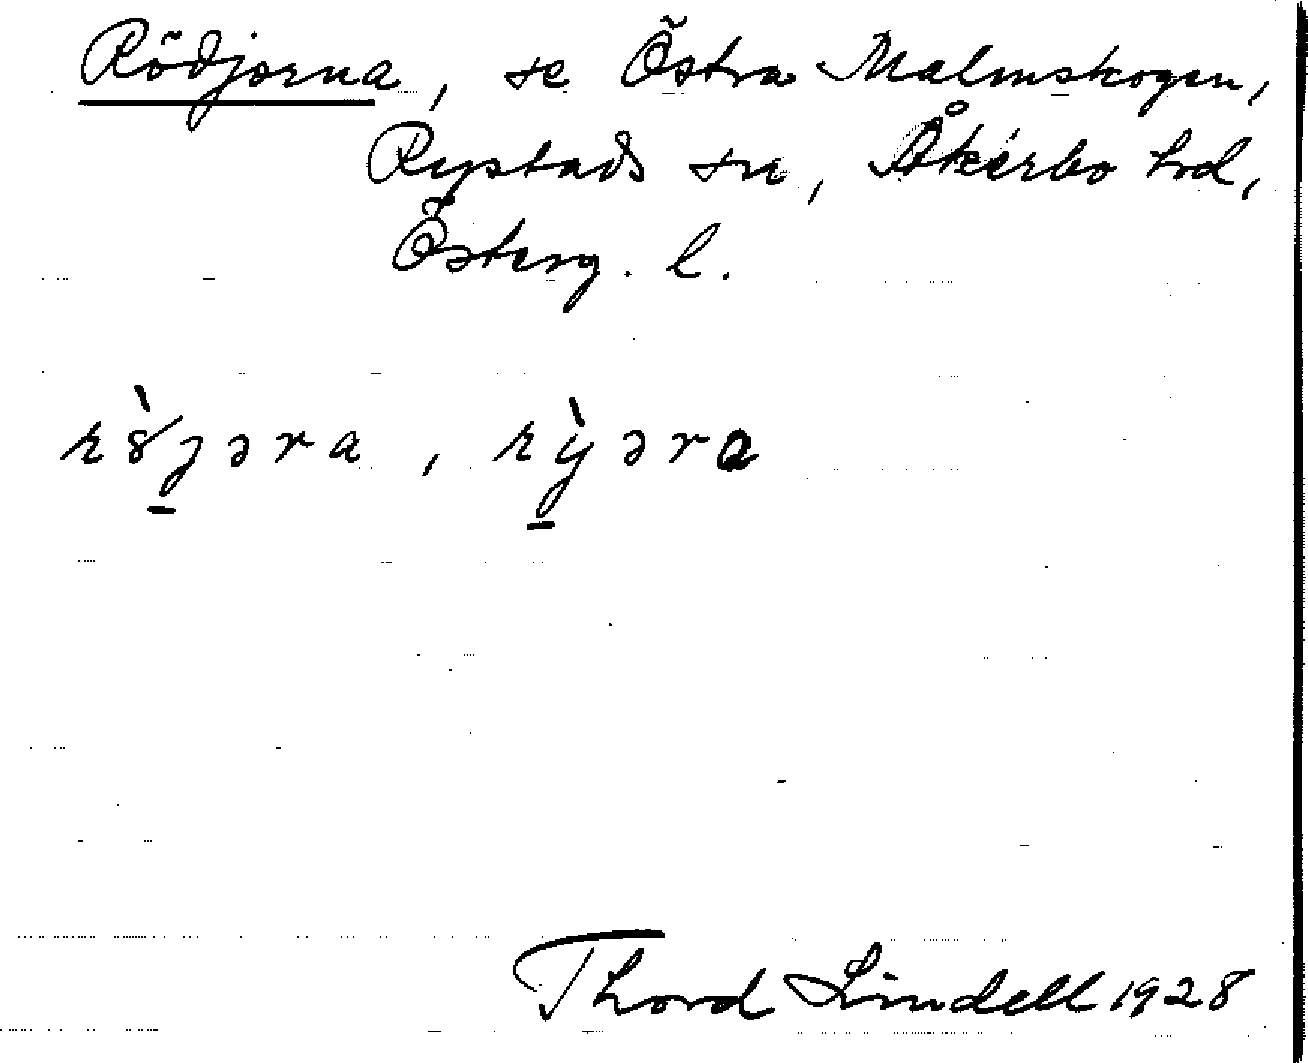 Rödjorna, se Östra Malmskogen,
Rystads sn, Åkerbo hd,
Österg. l.
Thord Lindell 1928